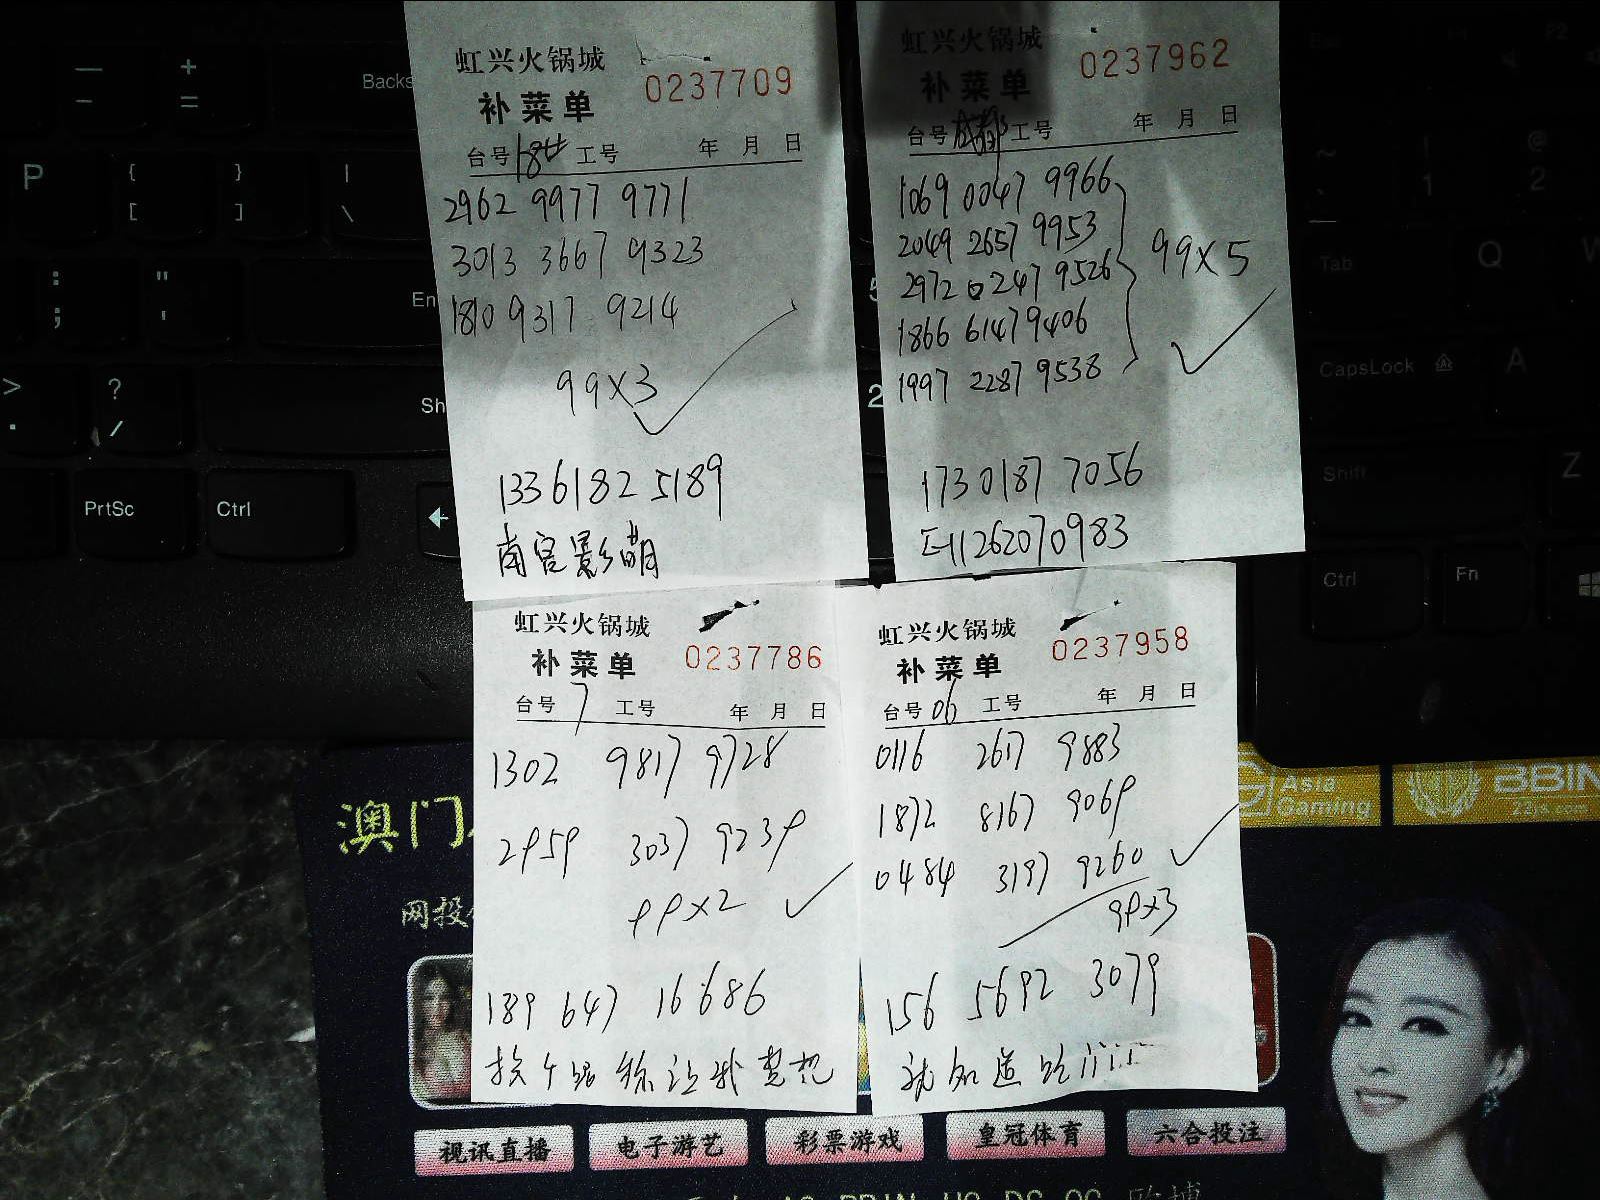 虹兴火锅城
0237709
补菜单
台号 184 工号 年 月 日
2962 9977 9771
3013 3667 9323
1810 9317 9214
99×3
133 6182 5189
南宫影萌
虹兴火锅城
0237962
补菜单
台号 成都 工号 年 月 日
1069 0047 9966
2049 2657 9953
2972 0247 9526
1866 6147 9406
1997 2287 9538
99×5
173 0187 7056
E11262070983
虹兴火锅城
补菜单
0237786
台号 7 工号 年 月 日
1302 9817 9728
2959 3037 9239
99×2
189 647 16686
挨个 你让我
虹兴火锅城
补菜单
0237958
台号 06 工号 年 月 日
0116 2617 9883
1872 8167 9069
0484 3197 9260
99×3
156 5692 3079
就知道吃
Backs
P
{
[
}
]
|
\
:
;
"
'
En
>
.
?
/
Sh
PrtSc
Ctrl
Tab
Q
CapsLock
A
Shift
Z
Ctrl
Fn
澳门
网投
Asia
Gaming
BBIN
视讯直播
电子游艺
彩票游戏
皇冠体育
六合投注